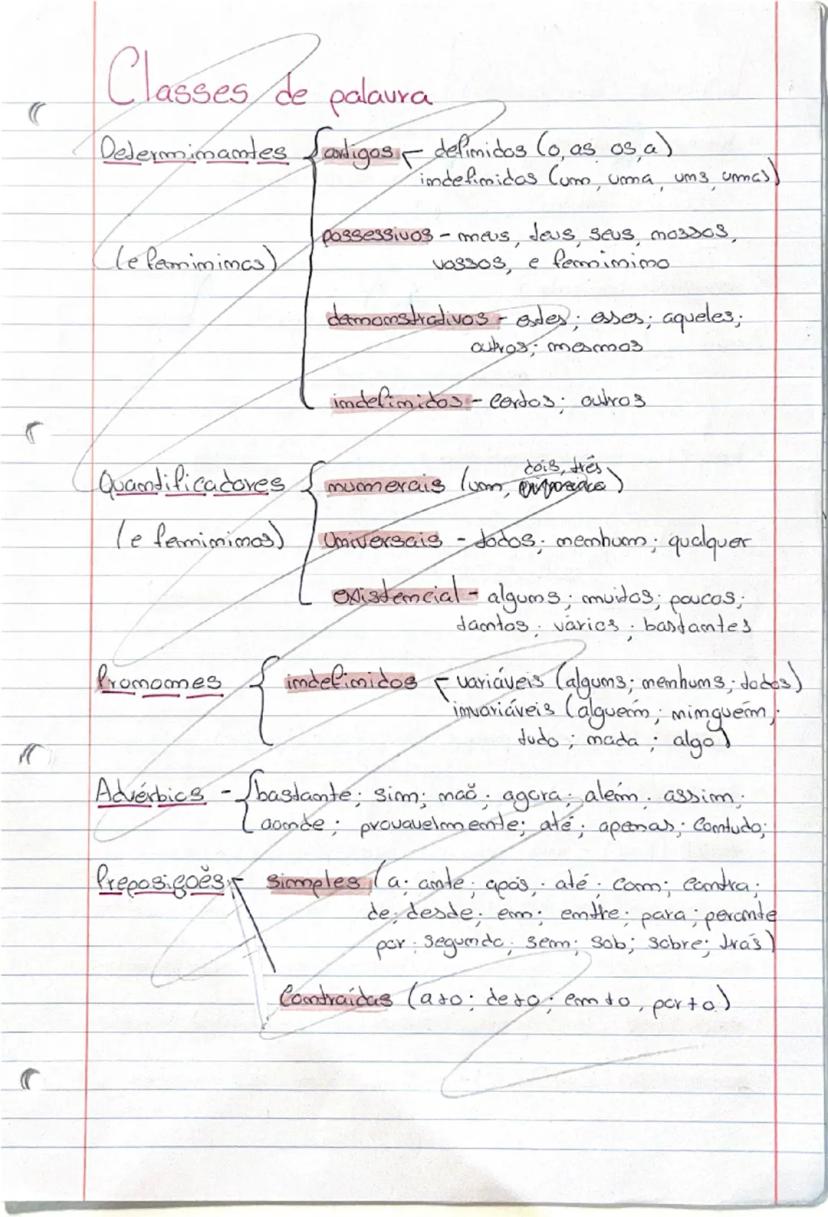 Classes de palavra
Determinantes artigos definidos (o, as os, a)
indefinidos (um, uma, uns, umas)
possessivos - meus, teus, seus, nossos,
(e femininas) vossos, e feminino
demonstrativos - estes; esses; aqueles;
outros; mesmos
indefinidos - certos; outros
dois, três
Quantificadores numerais (um, )
(e femininos) Universais - todos; nenhum; qualquer
existencial - alguns; muitos; poucos;
tantos; vários; bastantes
Pronomes indefinidos variáveis (alguns; nenhuns; todos)
invariáveis (alguém; ninguém;
tudo; nada; algo)
Advérbios - bastante; sim; não; agora; além; assim;
aonde; provavelmente; até; apenas; contudo;
Preposições - simples (a; ante; após; até; com; contra;
de; desde; em; entre; para; perante
por; segundo; sem; sob; sobre; trás)
Contraídas (a+o; de+o; em+o, por+o)